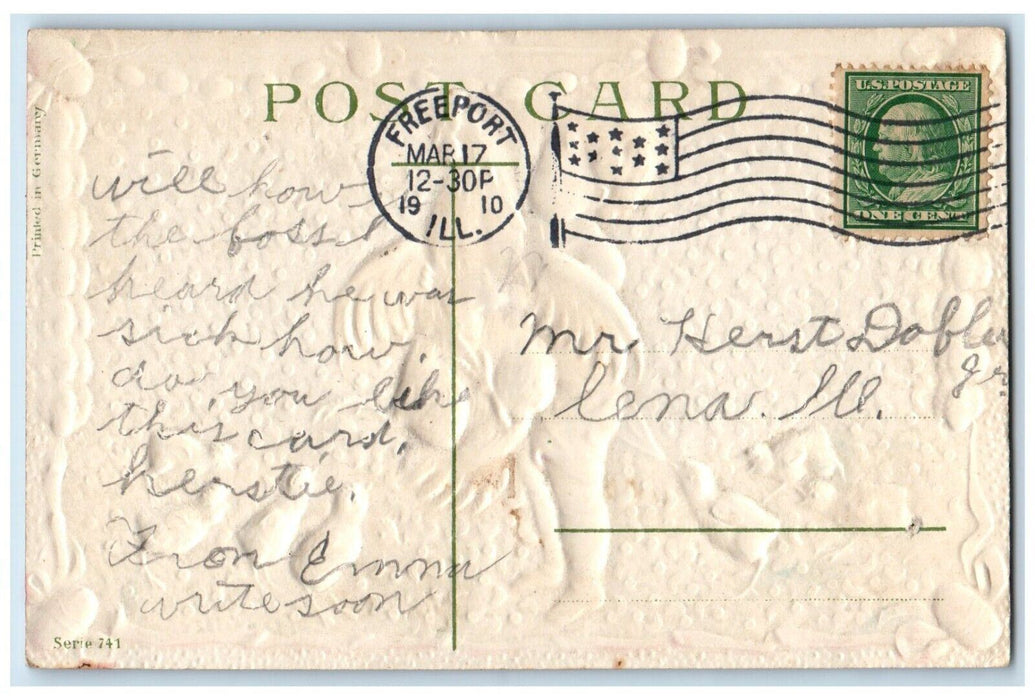 POST CARD
Printed in Germany
FREEPORT
MAR 17
12-30P
19 10
ILL.
U.S. POSTAGE
ONE CENT
will how
the boss I
heard he was
sick how
do you like
this card,
herstie.
From Emma
write soon
Mr Herst Dobler
Jr.
Lena. Ill.
Serie 741